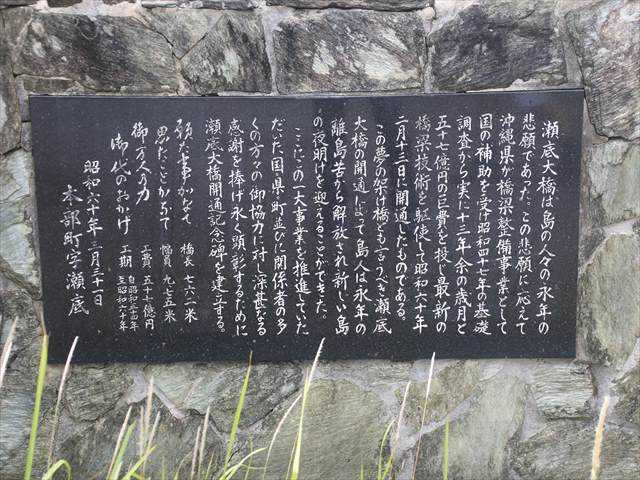 瀬底大橋は島の人々の永年の
悲願であった。この悲願に応えて
沖縄県が橋梁整備事業として
国の補助を受け昭和四十七年の基礎
調査から実に十三年余の歳月と
五十七億円の巨費を投じ最新の
橋梁技術を駆使して昭和六十年
二月十三日に開通したものである。
この夢の架け橋とも言うべき瀬底
大橋の開通によって島人は永年の
離島苦から解放され新しい島
の夜明けを迎えることができた。
ここにこの一大事業を推進していた
だいた国・県・町並びに関係者の多
くの方々の御協力に対し深甚なる
感謝を捧げ永く顕彰するために
瀬底大橋開通記念碑を建立する。
願た事かなて 橋長 七六二米
思たことかなて 幅員 九・七五米
御万人ぬ力 工費 五十七億円
御代のおかげ 工期 自昭和五十四年 至昭和六十年
昭和六十年三月三十一日
本部町字瀬底